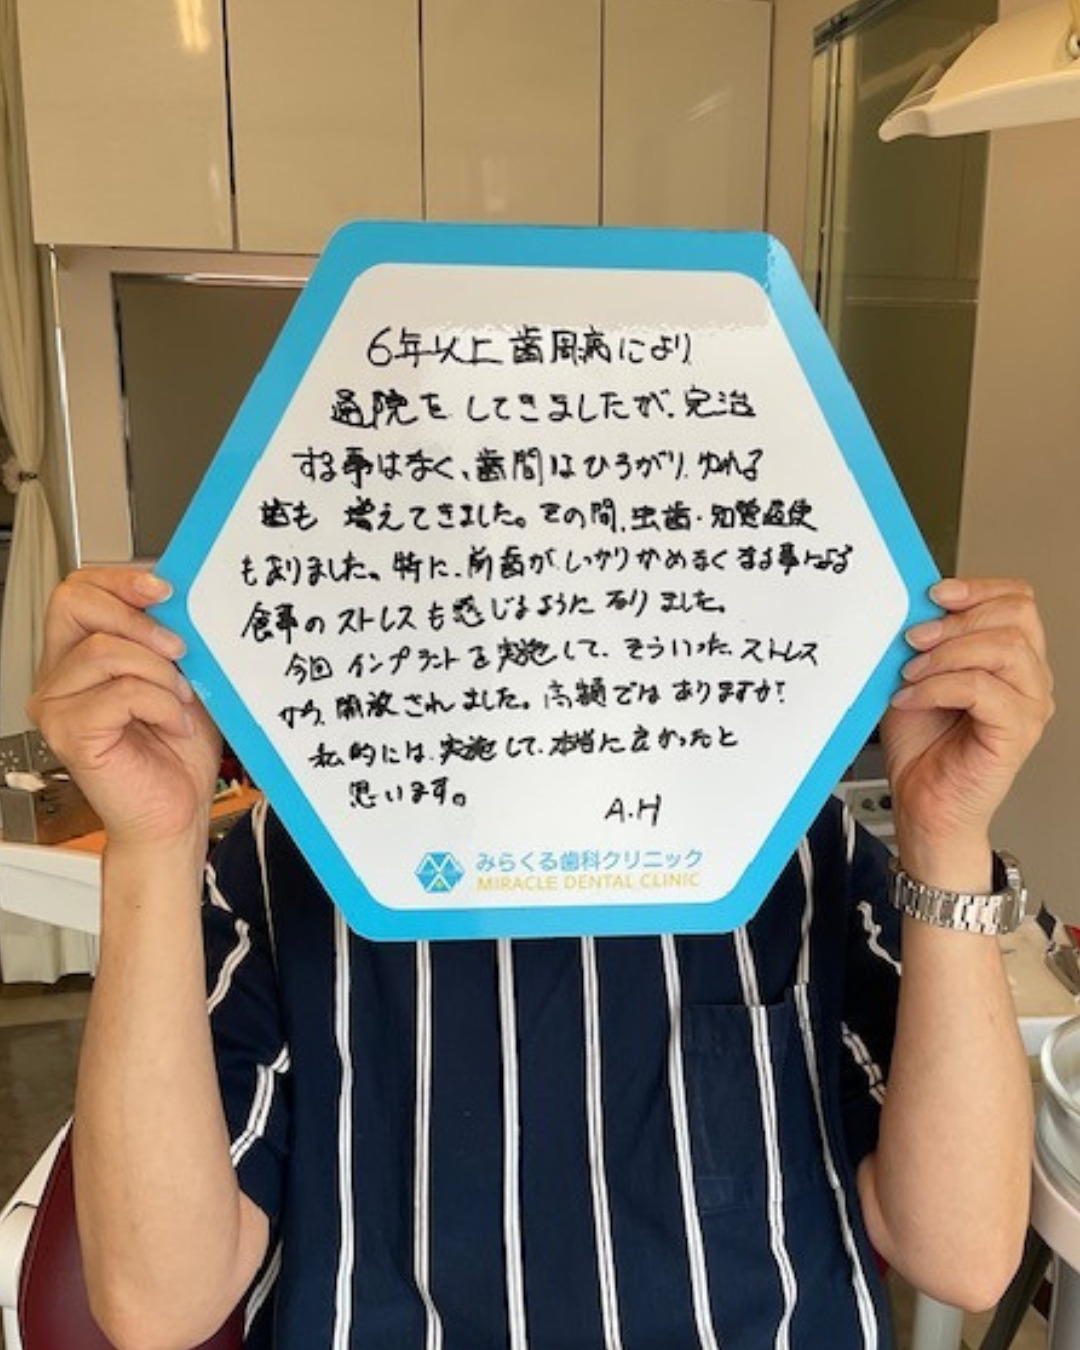 6年以上歯周病により
通院をしてきましたが、完治
する事はなく、歯間はひろがり、ゆれる
歯も 増えてきました。その間、虫歯・知覚過敏
もありました。特に、前歯がしっかりかめなくなる事による
食事のストレスも感じるようになりました。
今回 インプラントを実施して、そういった、ストレス
から、開放されました。高額ではありますが、
私的には、実施して、本当に良かったと
思います。
A.H
みらくる歯科クリニック
MIRACLE DENTAL CLINIC